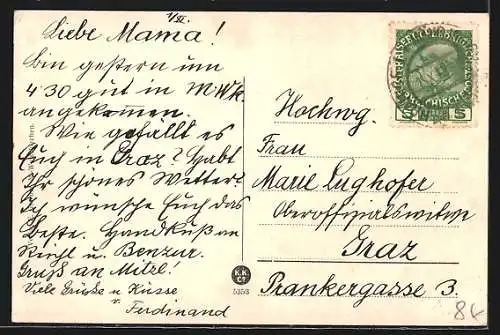 1/VI.
Liebe Mama!
Bin gestern um
4 30 gut in
angekommen.
Wie gefällt es
Euch in Graz? Habt
Ihr schönes Wetter?
Ich wünsche Euch das
Beste. Handkuß an
u. Benzur.
Gruß an Mitzl!
Viele Grüße u Küsse
v. Ferdinand
Hochwg.
Frau
Marie Lughofer
Oberoffizialswitwe
Graz
Prankergasse 3.
5 5
K.K.
5353